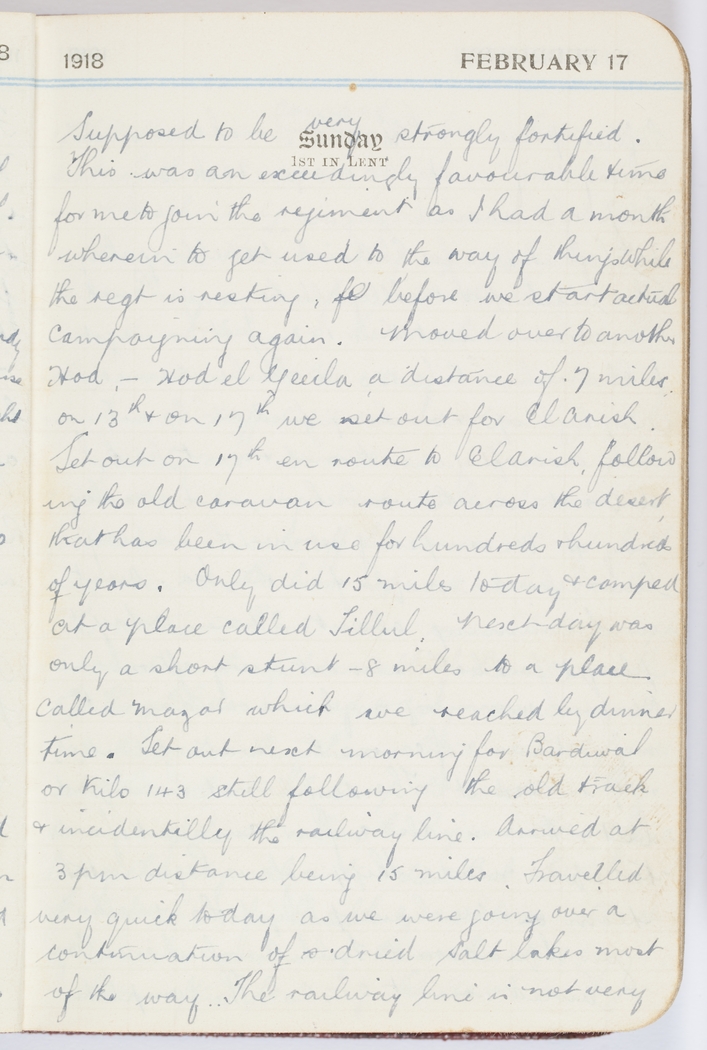 1918 FEBRUARY 17
Sunday
1ST IN LENT
Supposed to be very strongly fortified.
This was an exceedingly favourable time
for me to join the regiment as I had a month
wherein to get used to the way of things while
the regt is resting, before we start actual
campaigning again. Moved over to another
Hod, - Hod el Geeila, a distance of 7 miles.
on 13th & on 17th we set out for El Arish.
Set out on 17th en route to El Arish, follow
ing the old caravan route across the desert,
that has been in use for hundreds & hundreds
of years. Only did 15 miles today & camped
at a place called Tillul. Next day was
only a short stunt - 8 miles to a place
called Mazar which we reached by dinner
time. Set out next morning for Bardiwal
or Kilo 143 still following the old track
& incidentilly the railway line. Arrived at
3 pm distance being 15 miles. Travelled
very quick today as we were going over a
continuation of dried salt lakes most
of the way.. The railway line is not very